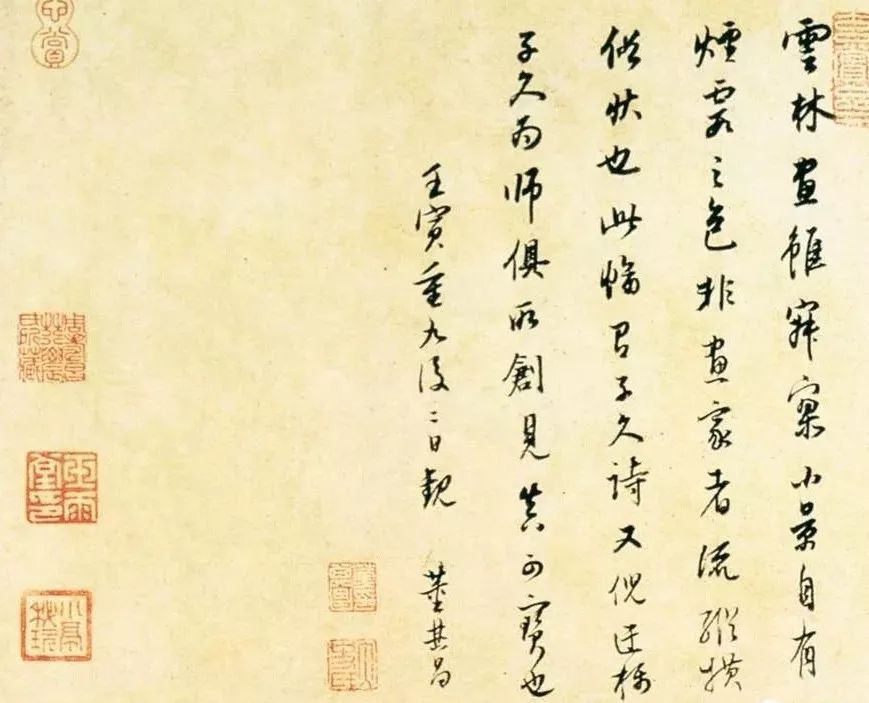 雲林畫雖寂寥小景自有
煙霞之色非畫家者流縱橫
俗狀也此幅有子久詩又倪迂稱
子久為師俱所創見真可寶也
壬寅重九後二日觀 董其昌